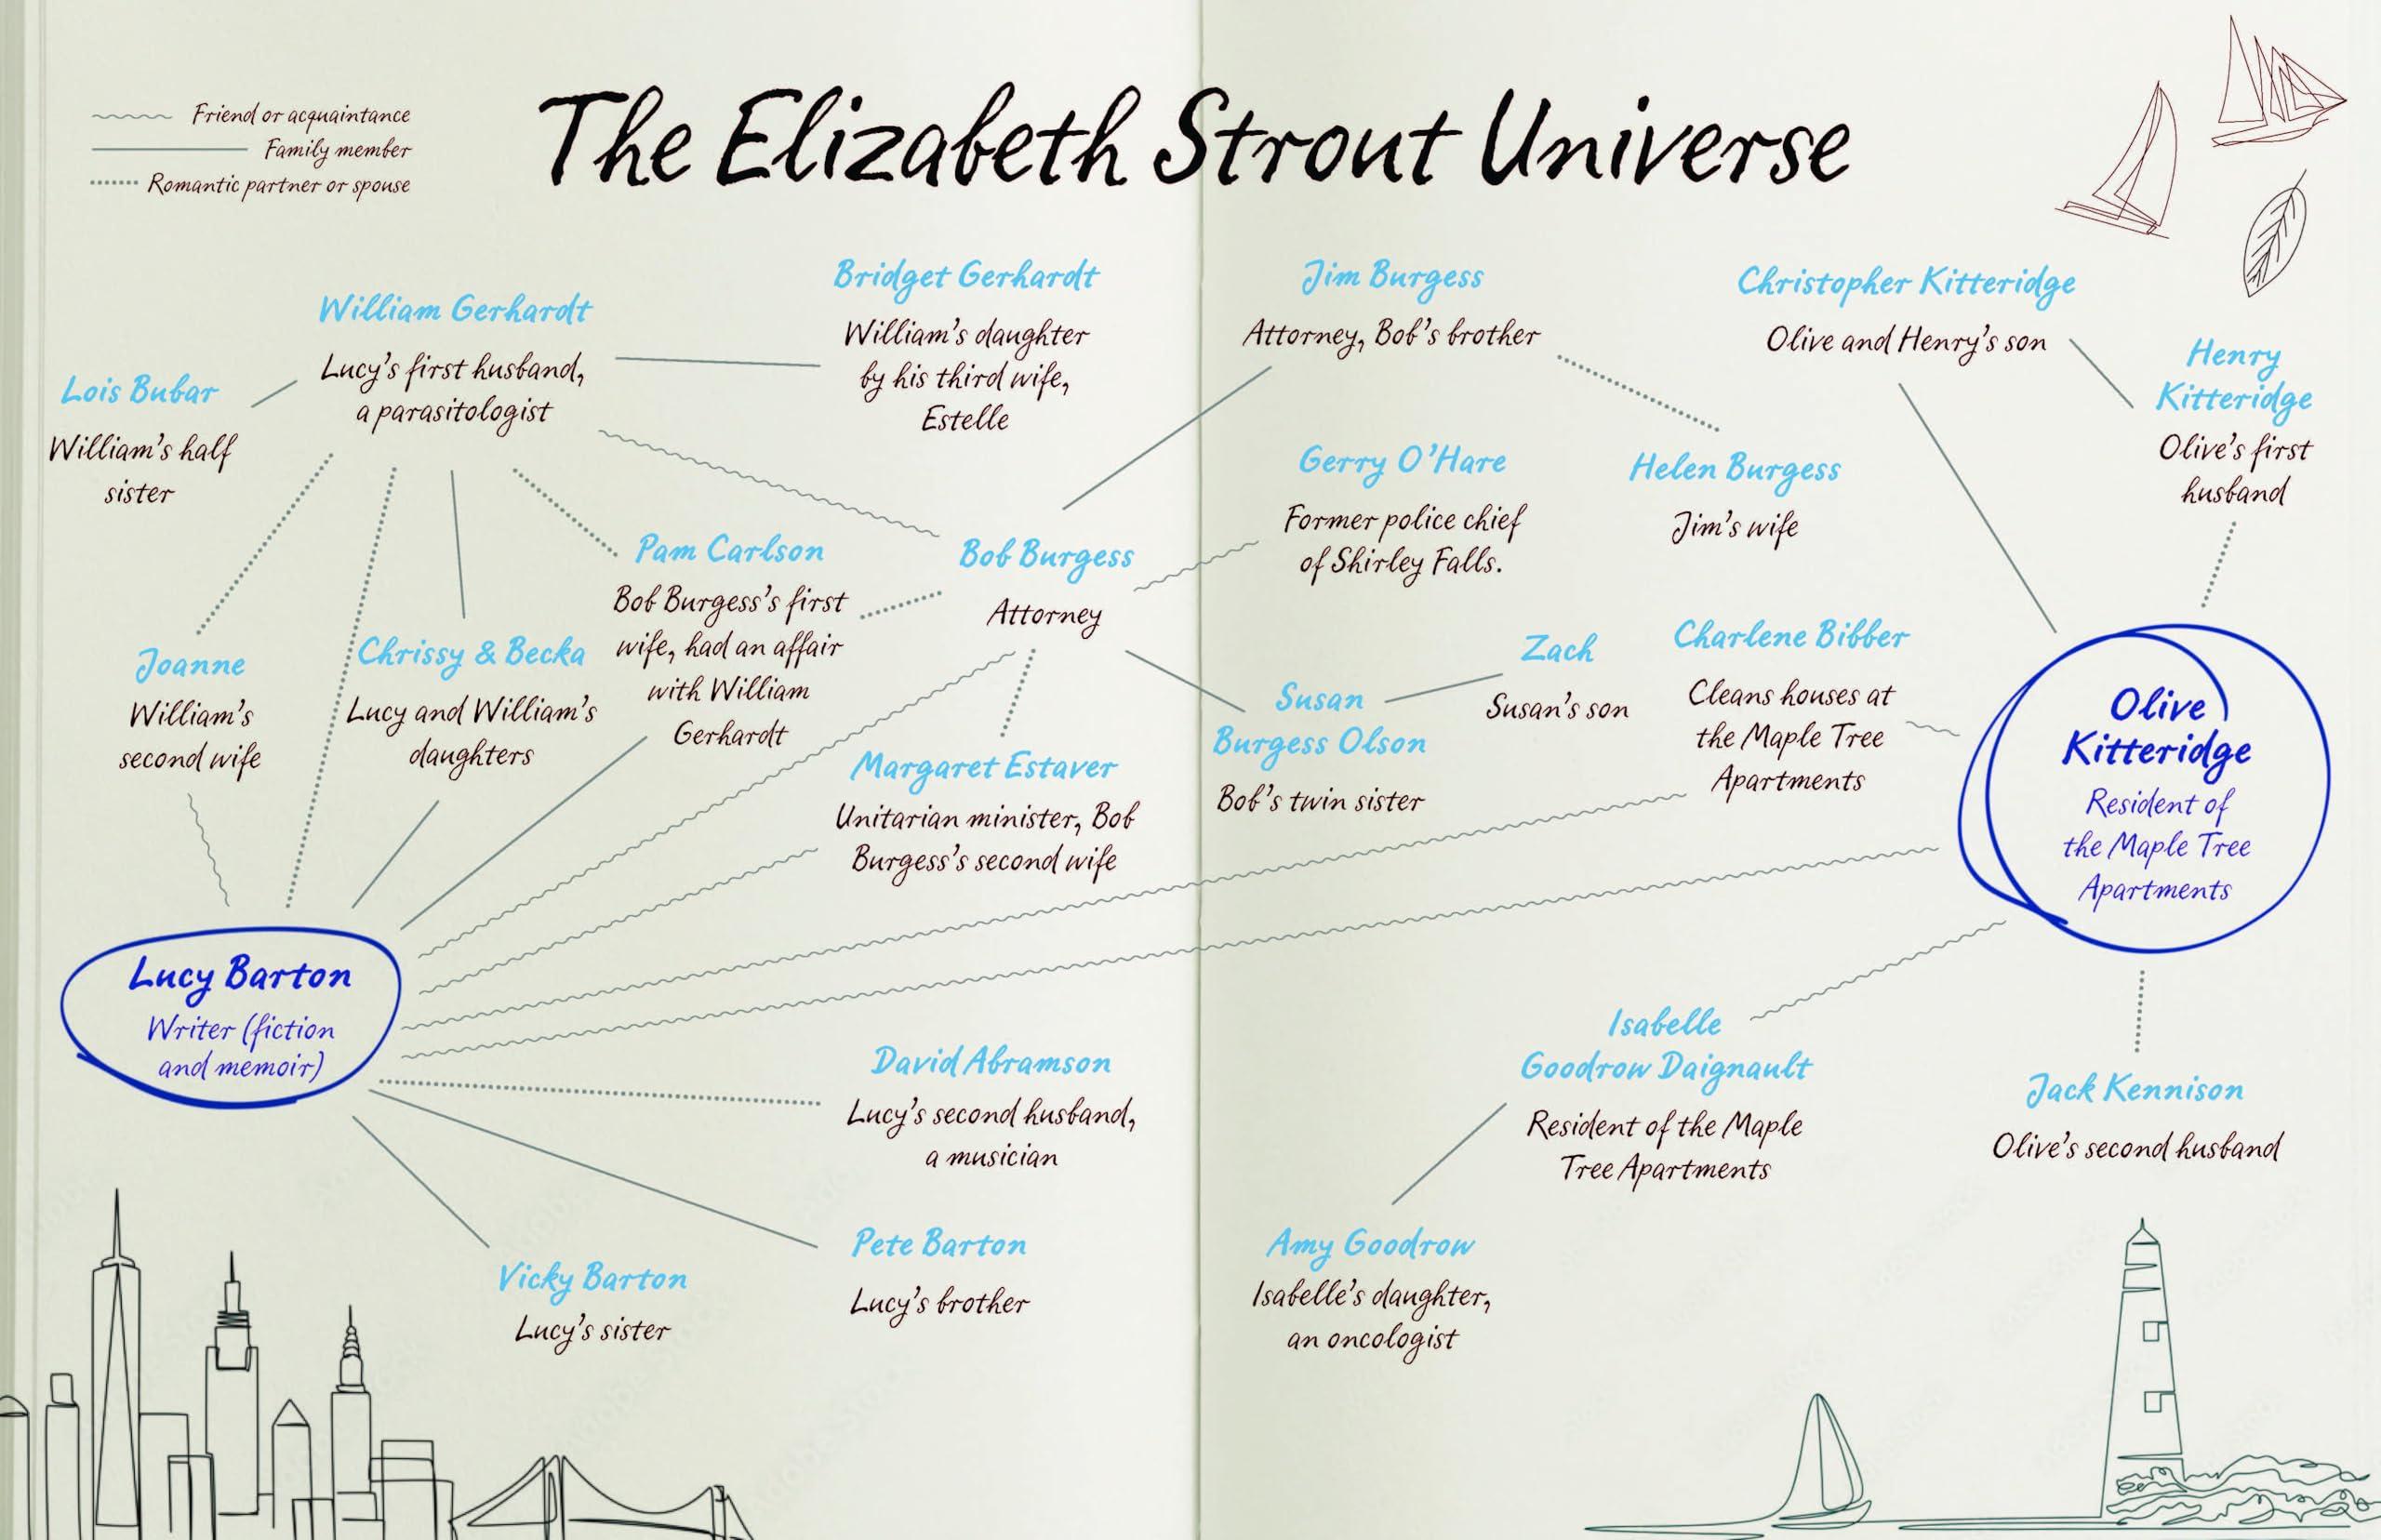 The Elizabeth Strout Universe
Friend or acquaintance
Family member
Romantic partner or spouse
William Gerhardt
Lucy's first husband,
a parasitologist
Bridget Gerhardt
William's daughter
by his third wife,
Estelle
Jim Burgess
Attorney, Bob's brother
Christopher Kitteridge
Olive and Henry's son
Henry
Kitteridge
Olive's first
husband
Lois Bubar
William's half
sister
Gerry O'Hare
Former police chief
of Shirley Falls.
Helen Burgess
Jim's wife
Pam Carlson
Bob Burgess's first
wife, had an affair
with William
Gerhardt
Bob Burgess
Attorney
Joanne
William's
second wife
Chrissy & Becka
Lucy and William's
daughters
Margaret Estaver
Unitarian minister, Bob
Burgess's second wife
Susan
Burgess Olson
Bob's twin sister
Zach
Susan's son
Charlene Bibber
Cleans houses at
the Maple Tree
Apartments
Olive
Kitteridge
Resident of
the Maple Tree
Apartments
Lucy Barton
Writer (fiction
and memoir)
David Abramson
Lucy's second husband,
a musician
Isabelle
Goodrow Daignault
Resident of the Maple
Tree Apartments
Jack Kennison
Olive's second husband
Vicky Barton
Lucy's sister
Pete Barton
Lucy's brother
Amy Goodrow
Isabelle's daughter,
an oncologist